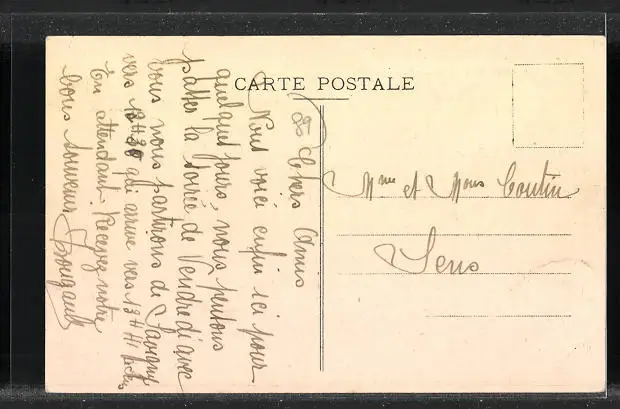 CARTE POSTALE
Chers Amis
Nous voici enfin ici pour
quelques jours, nous pensons
passer la soirée de Vendredi avec
vous nous partirons de Savigny
vers qui arrive vers 13 H 41
En attendant. Recevez notre
bons souvenir
Mme et Mons Coutin
Sens